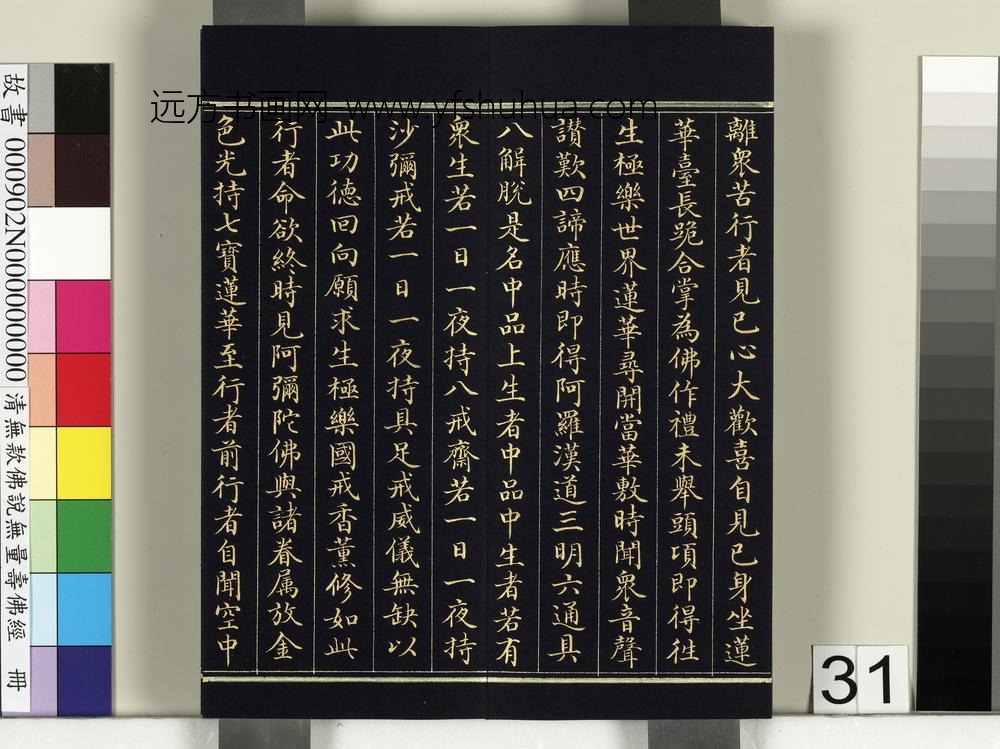 離衆苦行者見已心大歡喜自見己身坐蓮
華臺長跪合掌為佛作禮未舉頭頃即得徃
生極樂世界蓮華尋開當華敷時聞衆音聲
讃歎四諦應時即得阿羅漢道三明六通具
八解脱是名中品上生者中品中生者若有
衆生若一日一夜持八戒齋若一日一夜持
沙彌戒若一日一夜持具足戒威儀無缺以
此功德回向願求生極樂國戒香薰修如此
行者命欲終時見阿彌陀佛與諸眷属放金
色光持七寶蓮華至行者前行者自聞空中
远方书画网 www.yfshuhua.com
故書 000902N000000000 清無款佛說無量壽佛經 冊
31